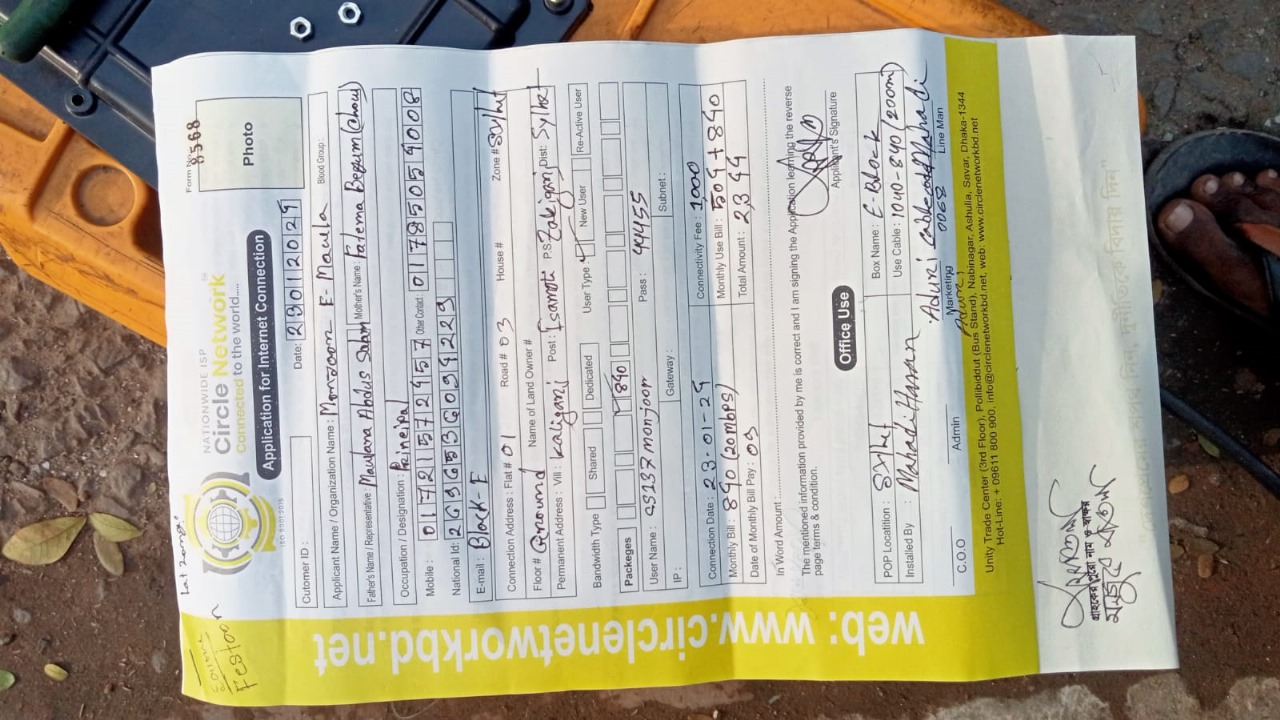 Form No:
8568
Photo
NATIONWIDE ISP
Circle Network™
Connected to the world.....
ISO 9001:2015
Application for Internet Connection
Cutomer ID :
Date: 23012025
Applicant Name / Organization Name : Monzoom E- Maula Blood Group:
Father's Name / Representative : Maulana Abdus Salam Mother's Name : Fatema Begum (Chow)
Occupation / Designation : Principal
Mobile : 01721572957 Other Contact 01785059008
National Id:
E-mail : Block-E
Connection Address : Flat # 01 Road # 03 House # Zone # Sylhet
Floor # Ground Name of Land Owner #
Permanent Address : Vill : kaliganj Post : P.S: Zakiganj Dist: Sylhet
Bandwidth Type Shared Dedicated User Type : New User Re-Active User
Packeges 840
User Name : Pass : 44455
IP : Gateway : Subnet :
Connection Date : 23-01-25 Connectivity Fee : 1000
Monthly Bill : 840 (20mbps) Monthly Use Bill : 504+840
Date of Monthly Bill Pay : 05 Total Amount : 2344
In Word Amount
The mentioned information provided by me is correct and I am signing the Application learning the reverse
page terms & condition.
Applicant's Signature
Office Use
POP Location : Sylhet Box Name : E-Block
Installed By : Mahadi Hasan Use Cable : 1040-840 (200m)
C.O.O Admin Marketing Line Man
Unity Trade Center (3rd Floor), Pollibiddut (Bus Stand), Nabinagar, Ashulia, Savar, Dhaka-1344
Hot-Line: + 09611 800 900, info@circlenetworkbd.net, web: www.circlenetworkbd.net
web: www.circlenetworkbd.net
Festoon
গ্রাহকের পুরো নাম ও স্বাক্ষর